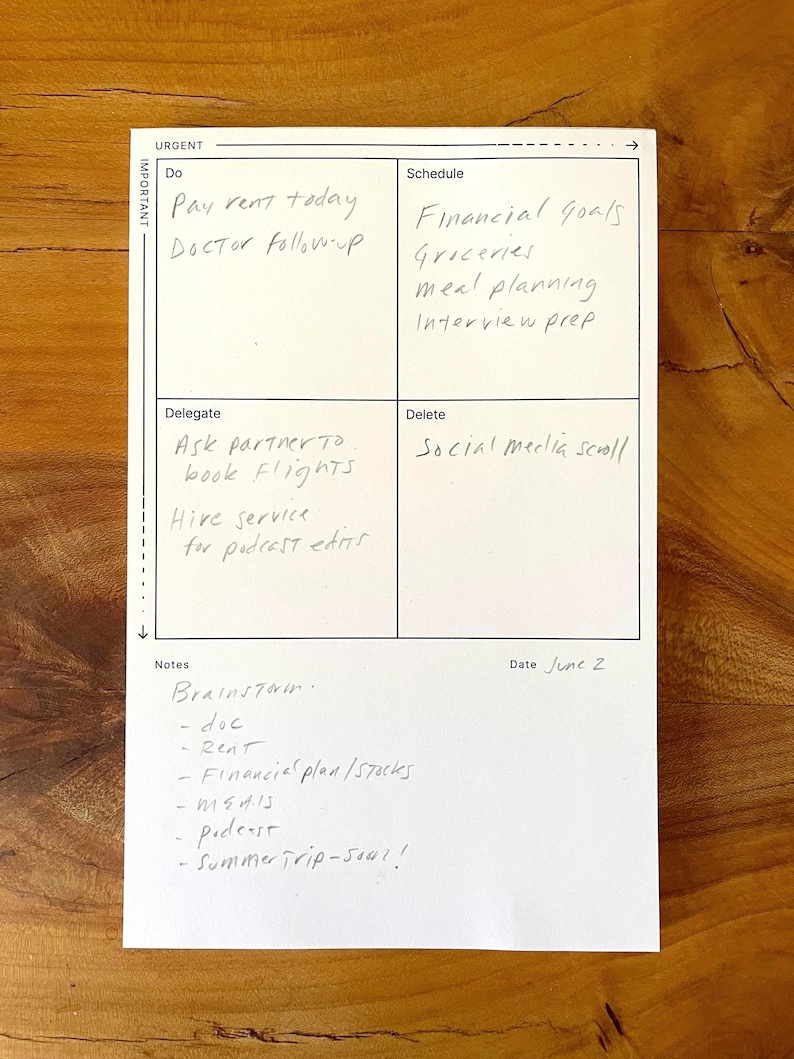 URGENT
IMPORTANT
Do
Pay rent today
Doctor follow-up
Schedule
Financial goals
Groceries
meal planning
Interview prep
Delegate
Ask partner to
book Flights
Hire service
for podcast edits
Delete
Social media scroll
Notes
Date June 2
Brainstorm.
- doc
- Rent
- Financial plan/stocks
- meals
- podcast
- summer Trip - soon!